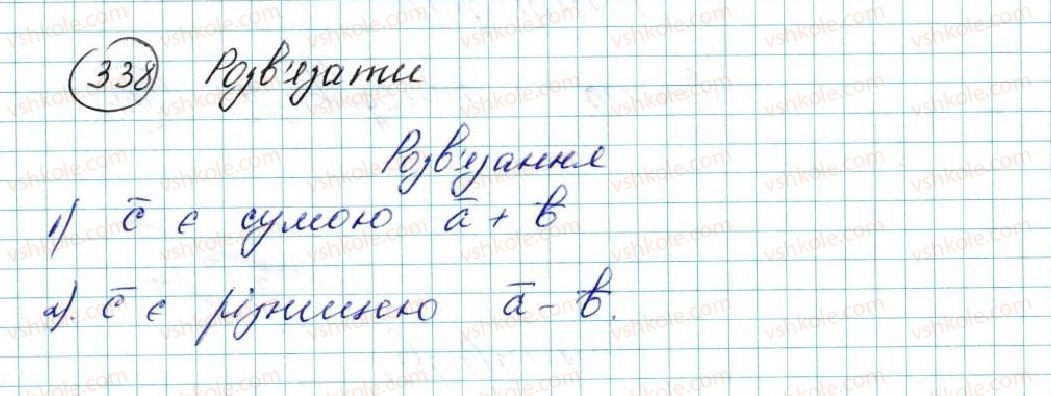 338 Розв'язати
Розв'язання
1) c̄ є сумою ā + b̄
2). c̄ є різницею ā - b̄.
vshkole.com